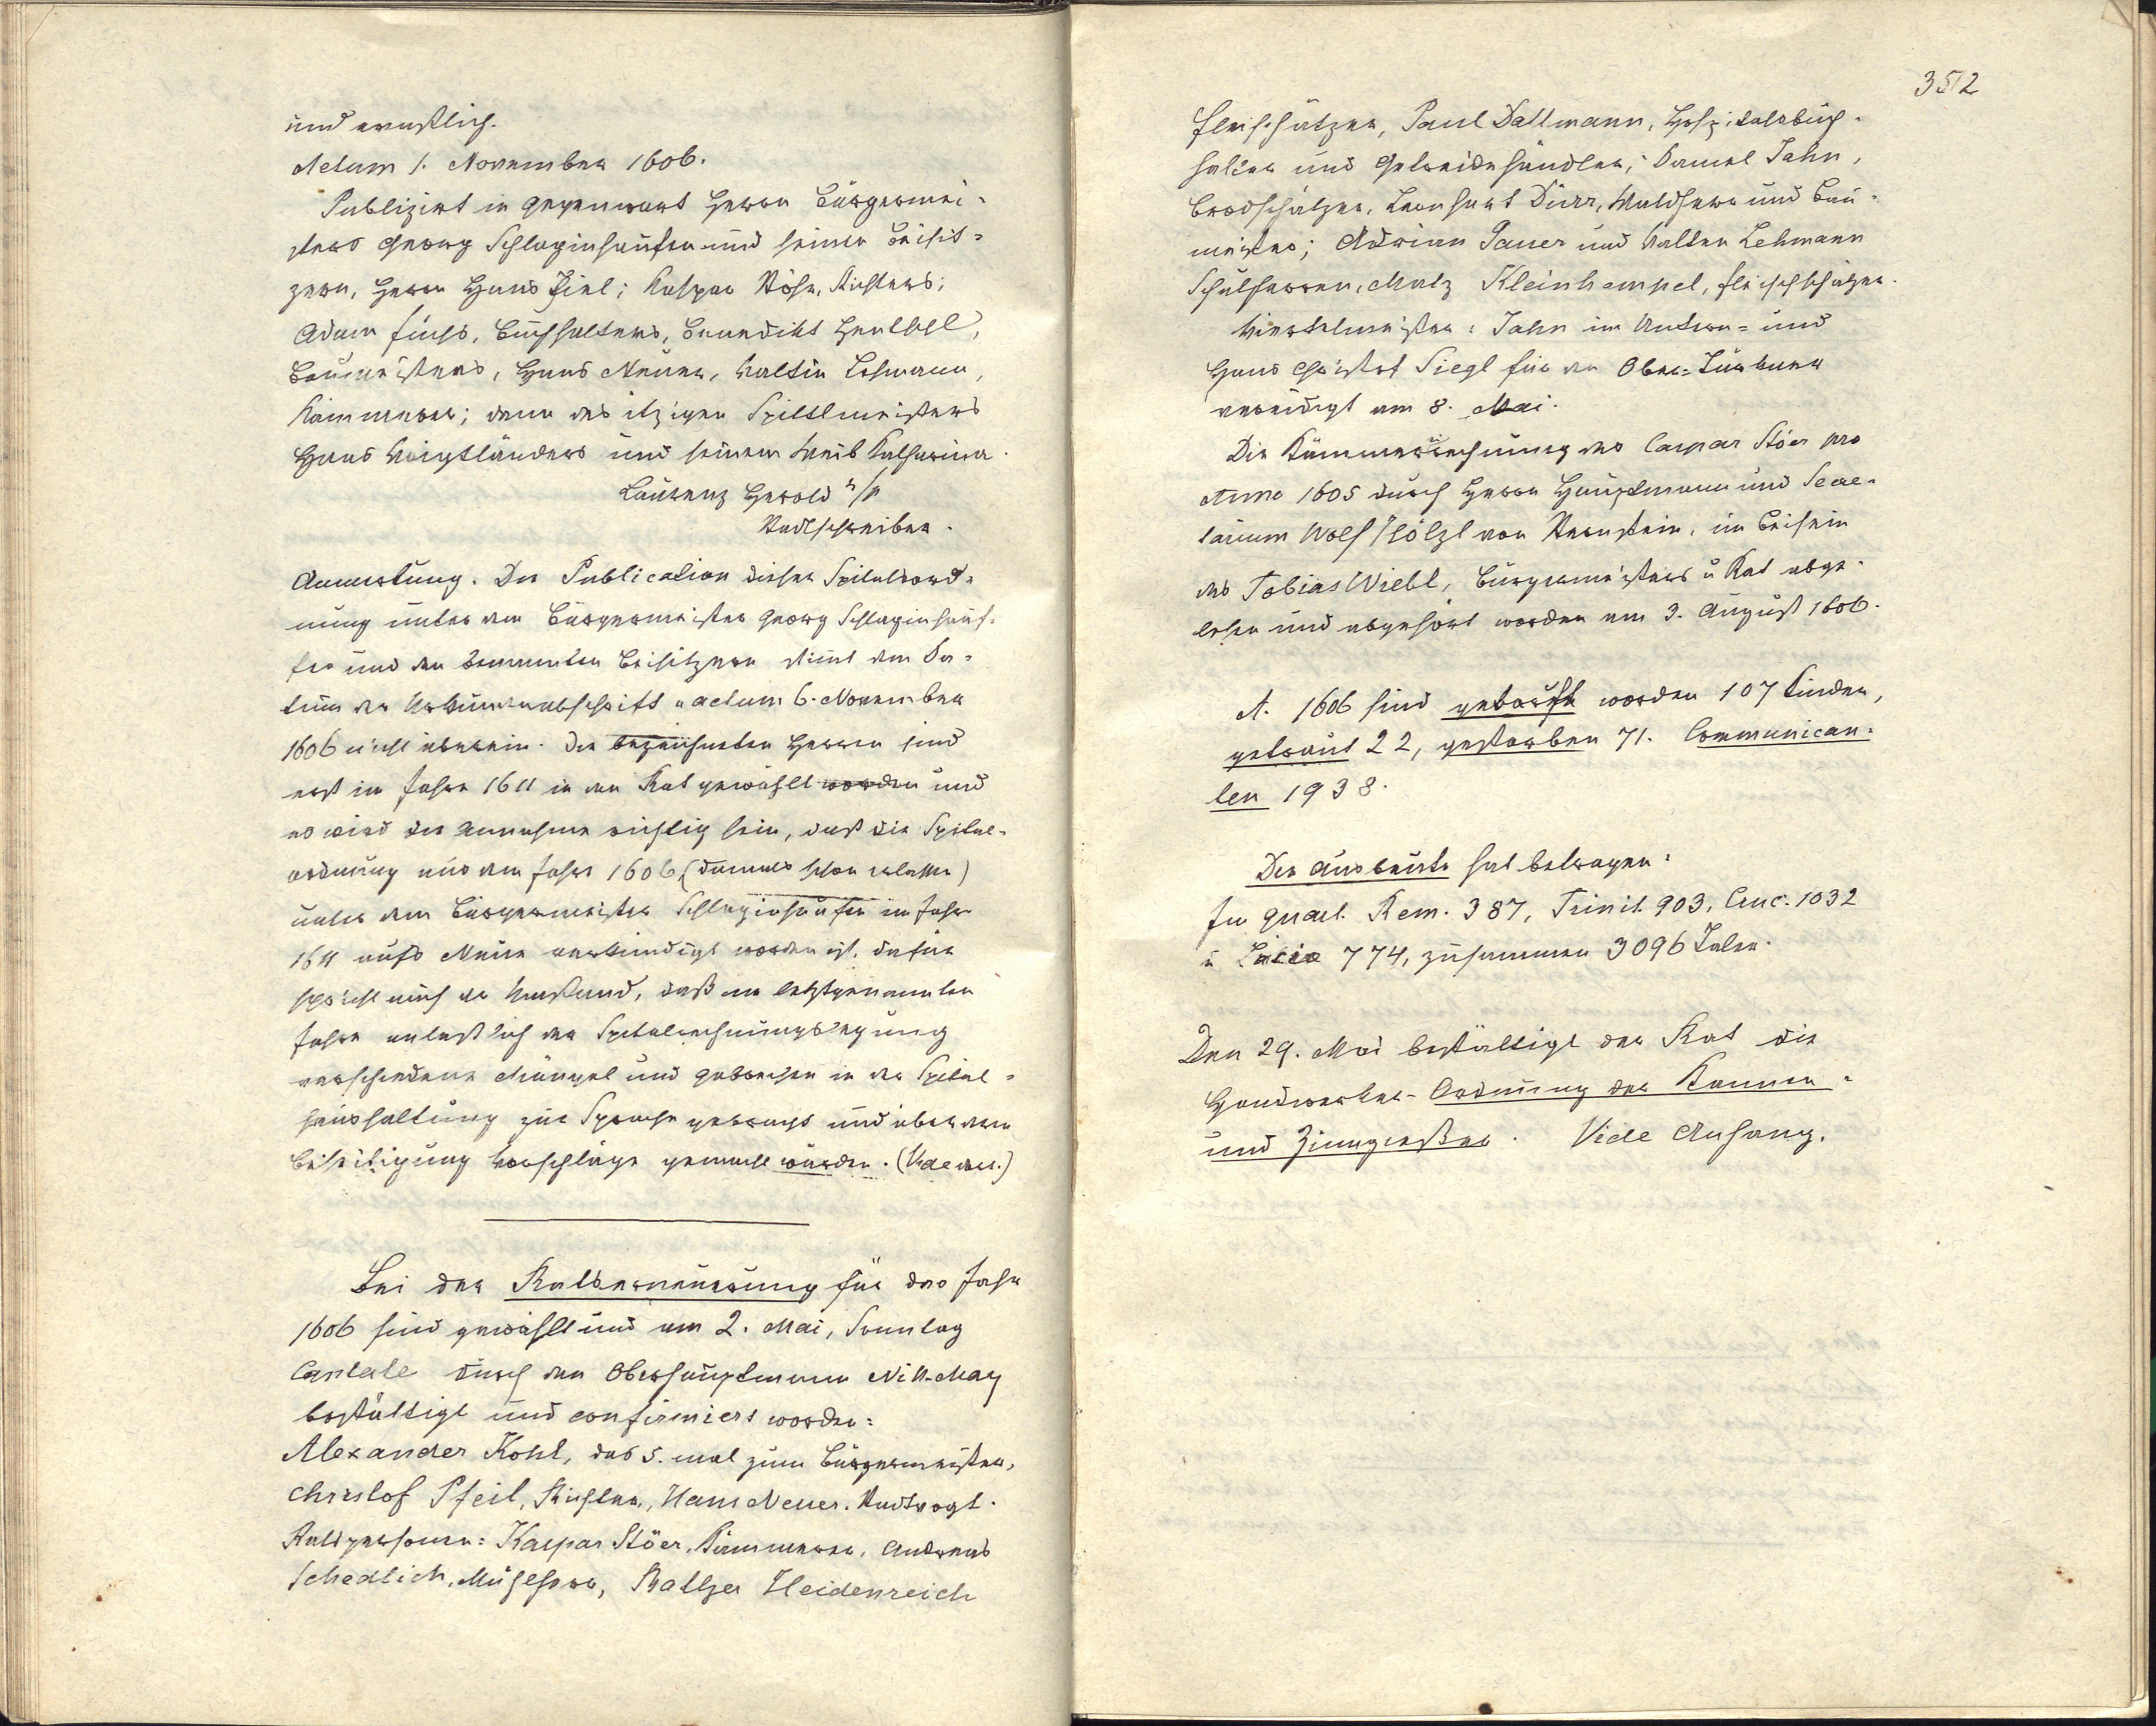 und ernstlich.
Actum 1. November 1606.
Publiziert in Gegenwart Herrn Bürgermei-
sters Georg Schlaginhaufen und seiner Beisit-
zern, Herrn Hans Ziel; Kaspar Stöhr, Richters;
Adam Fuchs, Buchhalters, Benedikt Hentschl,
Baumeisters, Hans Neuer, Valtin Lehmann,
Kämmerer; dann des itzigen Spittlmeisters
Hans Voigtländers und seinem Weib Katharina.
Laurenz Herold
Stadtschreiber.
Anmerkung. Die Publication dieser Spitalord-
nung unter dem Bürgermeister Georg Schlaginhauf-
fer und den benannten Beisitzern stimmt dem Da-
tum der Urkundenabschrift "actum 6. November
1606 nicht überein. Die bezeichneten Herren sind
erst im Jahre 1611 in den Rat gewählt worden und
es wird die Annahme richtig sein, daß die Spital-
ordnung aus dem Jahre 1606 (damals schon erlassen)
unter dem Bürgermeister Schlaginhaufen im Jahr
1611 aufs Neue verkündigt worden ist. Dafür
spricht auch der Umstand, daß im letztgenannten
Jahre anlaßlich der Spitalrechnungslegung
verschiedene Mängel und Gebrechen in der Spital-
haushaltung zur Sprache gebracht und über deren
Beseitigung Vorschläge gemacht wurden. (Vide)
Bei der Ratserneuerung für das Jahr
1606 sind gewählt und am 2. Mai, Sonntag
Cantate durch den Oberhauptmann Nik. May
bestättigt und confirmiert worden:
Alexander Kohl, das 5. mal zum Bürgermeister,
Christof Pfeil, Richter, Hans Neuer, Stadtvogt.
Ratspersonen: Kaspar Stöer, Kämmerer, Andreas
Schedlich, Mühlherr, Baltzer Heidenreich
352
Fleischsätzer, Paul Dallmann, Hospitalsbuch-
halter und Getreidehändler; Daniel Jahn,
Brodschätzer, Leonhart Dürr, Waldherr und Bau-
meister; Adrian Pauer und Valten Lehmann
Schulherren, Matz Kleinhempel, Fleischschätzer.
Viertelmeister: Jahn im Untern- und
Hans Christof Siegl für den Ober-Türkner
vereidigt am 8. Mai.
Die Kämmereirechnung des Caspar Stöer pro
Anno 1605 durch Herrn Hauptmann und Secre-
tarium Wolf Hölzl von Sternstein, im Beisein
des Tobias Wiebl, Bürgermeisters u Rat abge-
lesen und abgehört worden am 3. August 1606.
A. 1606 sind getauft worden 107 Kinder,
getraut 22, gestorben 71. Communican-
ten 1938.
Die Ausbeute hat betragen:
Im Quart. Rem. 387, Trinit. 903, Cruc. 1032
u Lucia 774, zusammen 3096 Taler.
Den 29. Mai bestättigt der Rat die
Handwerker-Ordnung der Kannen-
und Zinngießer. Vide Anhang.